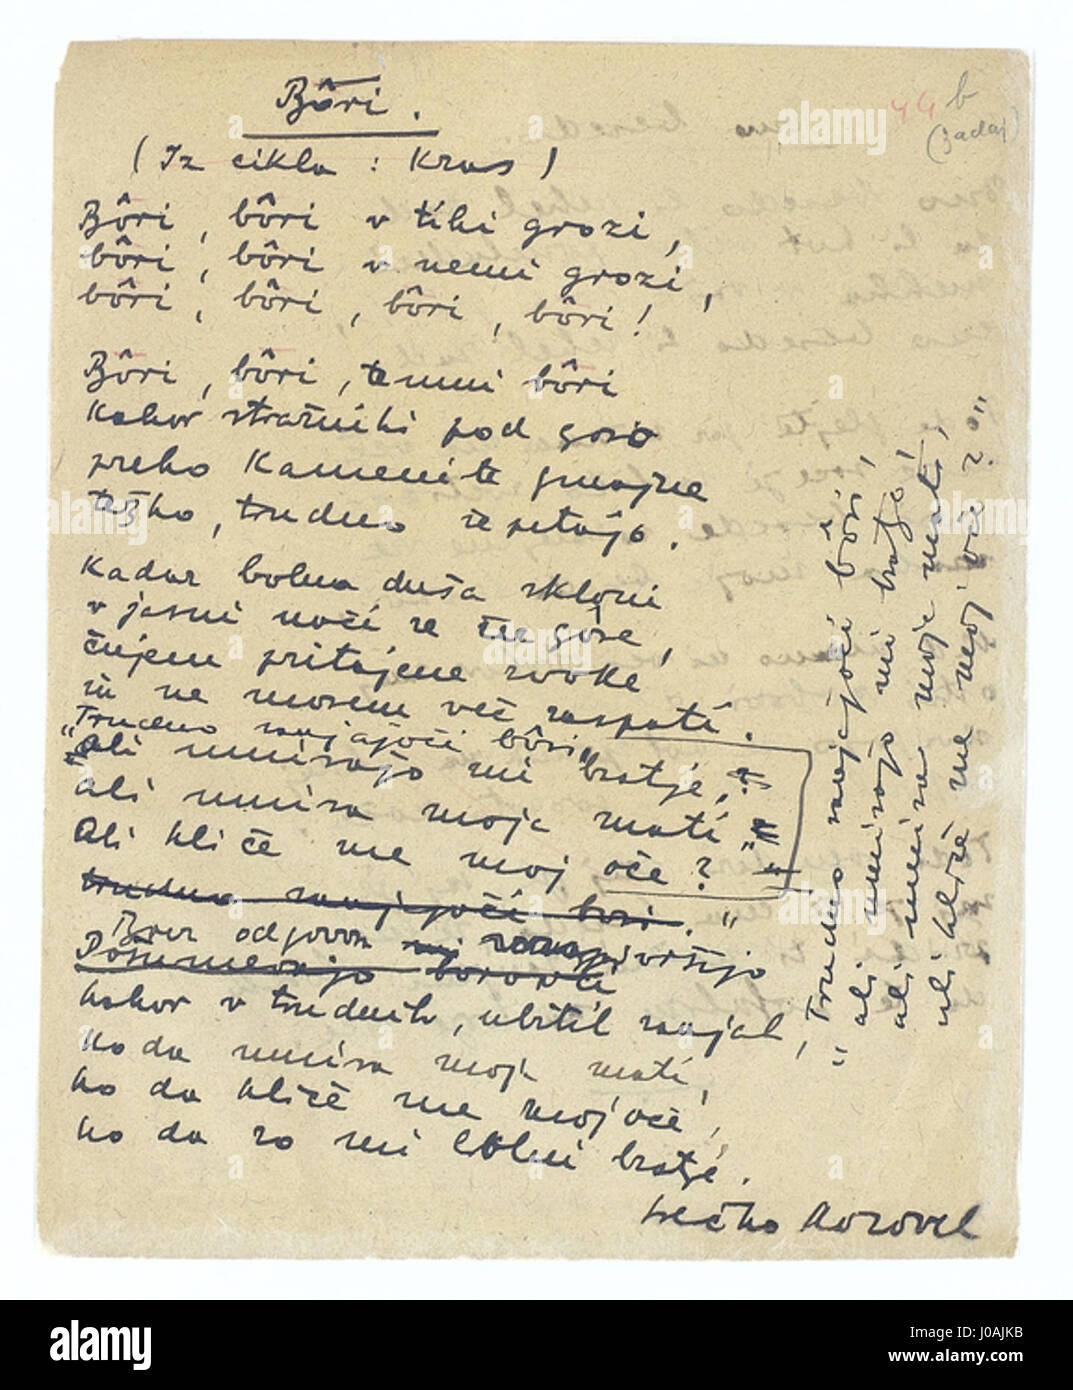 Bôri.
(Iz cikla: Kras)
b
(zadaj)
Bôri, bôri v tihi grozi,
bôri, bôri v nemi grozi,
bôri, bôri, bôri, bôri!
Bôri, bôri, temni bôri
kakor stražniki pod goró
preko kamenite gmajne
težko, trudno šepetajo.
Kadar bolna duša skloni
v jasni noči se čez gore,
čujem pritajene zvoke
in ne morem več zaspati.
"Trudno sanjajoči bôri,
ali umirajo mi bratje,
ali umira moja mati,
ali kliče me moj oče?
trudno sanjajoči bori."
Brez odgovora vršijo
kakor v trudnih, ubitih sanjah,
ko da umira moja mati,
ko da kliče me moj oče,
ko da so mi bolni bratje.
Srečko Kosovel
"Trudno sanjajoči bôri,
ali umirajo mi bratje,
ali umira moja mati,
ali kliče me moj oče?"
alamy
alamy
Image ID: J0AJKB
www.alamy.com